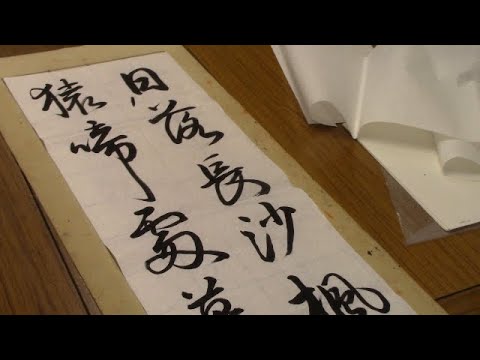 日落長沙楓
猿啼處